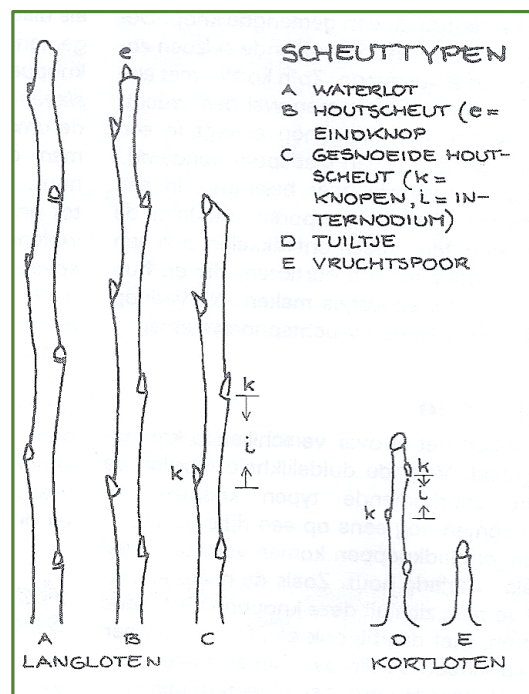 SCHEUTTYPEN
A WATERLOT
B HOUTSCHEUT (e =
EINDKNOP
C GESNOEIDE HOUT-
SCHEUT (k =
KNOPEN, i = IN-
TERNODIUM)
D TUILTJE
E VRUCHTSPOOR
e
k
i
k
k
i
k
A B C D E
LANGLOTEN KORTLOTEN